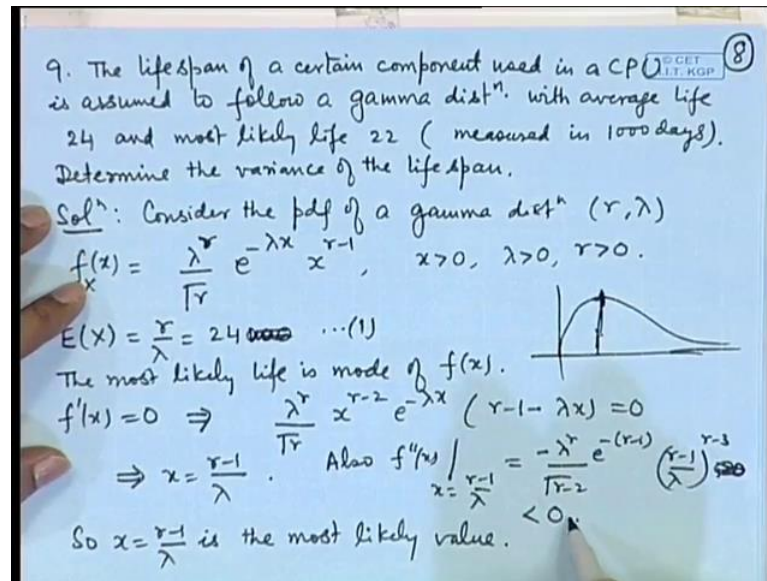 9. The lifespan of a certain component used in a CPU
© CET
I.I.T. KGP
8
is assumed to follow a gamma distⁿ. with average life
24 and most likely life 22 ( measured in 1000 days).
Determine the variance of the life span.
Solⁿ: Consider the pdf of a gamma distⁿ (r, λ)
f_X(x) = λ^r/Γr e^{-λx} x^{r-1}, x>0, λ>0, r>0.
E(X) = r/λ = 24 ...(1)
The most likely life is mode of f(x).
f'(x) = 0 ⇒ λ^r/Γr x^{r-2} e^{-λx} (r-1-λx) = 0
⇒ x = (r-1)/λ. Also f''(x)|_{x=(r-1)/λ} = -λ^r/Γr-2 e^{-(r-1)} ((r-1)/λ)^{r-3}
< 0.
So x = (r-1)/λ is the most likely value.